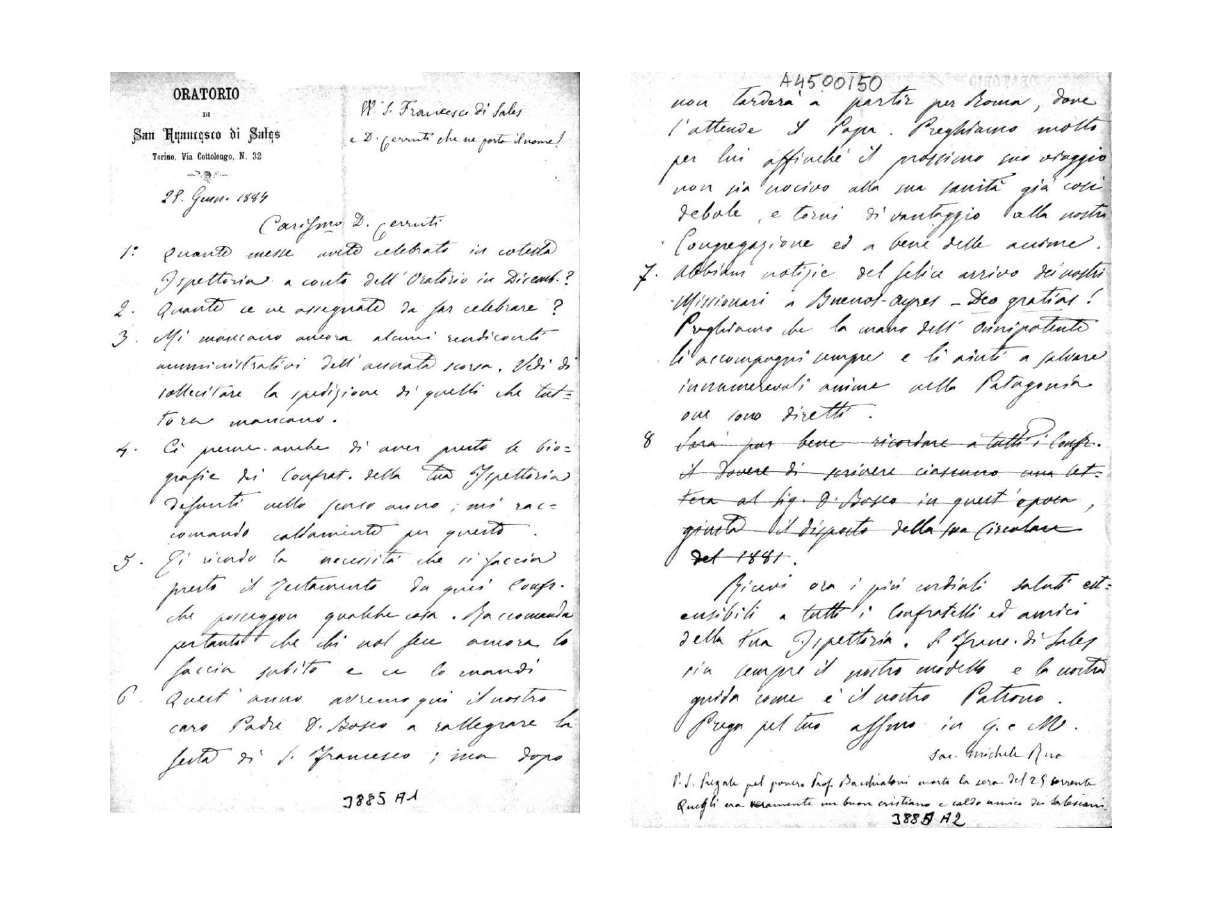 ORATORIO
DI
San Francesco di Sales
Torino, Via Cottolengo, N. 32
W. S. Francesco di Sales
e D. Cerruti che ne porta il nome!
29. Genn. 1884
Carissmo D. Cerruti
1° Quante messe avete celebrato in cotesta
Ispettoria a conto dell'Oratorio in Dicemb.?
2. Quante ce ne assegnate da far celebrare?
3. Mi mancano ancora alcuni rendiconti
amministrativi dell'annata scorsa. Vedi di
sollecitare la spedizione di quelli che tut=
tora mancano.
4. Ci preme anche di aver presto le bio=
grafie dei Confrat. della tua Ispettoria
defunti nello scorso anno; mi rac=
comando caldamente per questo.
5. Ti ricordo la necessità che si faccia
presto il Testamento da quei Confr.
che posseggon qualche cosa. Raccomanda
pertanto che chi nol fece ancora lo
faccia subito e ce lo mandi
6. Quest'anno avremo qui il nostro
caro Padre D. Bosco a rallegrare la
festa di S. Francesco; ma dopo
3885 A1
A4500150
non tarderà a partir per Roma, dove
l'attende il Papa. Preghiamo molto
per lui affinché il prossimo suo viaggio
non sia nocivo alla sua sanità già così
debole, e torni di vantaggio alla nostra
Congregazione ed a bene delle anime.
7. Abbiam notizie del felice arrivo dei nostri
Missionari a Buenos-Ayres - Deo gratias!
Preghiamo che la mano dell'Onnipotente
li accompagni sempre e li aiuti a salvare
innumerevoli anime nella Patagonia
ove sono diretti.
8 Sarà pur bene ricordare a tutti i Confr.
il dovere di scrivere ciascuno una let=
tera al Sig. D. Bosco in quest'epoca,
giusta il disposto della sua Circolare
del 1881.
Ricevi ora i più cordiali saluti est=
ensibili a tutti i Confratelli ed amici
della tua Ispettoria. S. Franc. di Sales
sia sempre il nostro modello e la nostra
guida come è il nostro Patrono.
Prega pel tuo affmo in G. e M.
Sac. Michele Rua
P.S. Pregate pel povero Prof. Bacchialoni morto la sera del 25 corrente
Quegli era veramente un buon cristiano e caldo amico dei Salesiani.
3885 A2